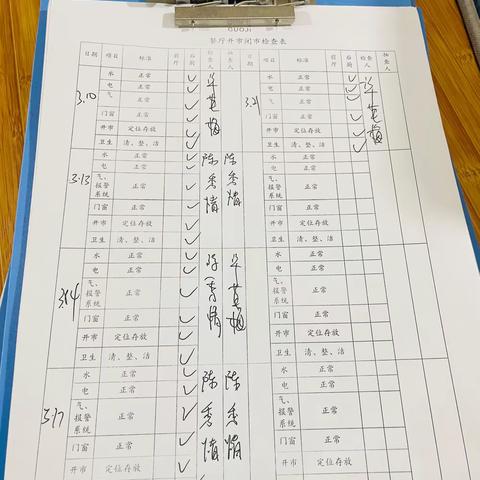 GUOJI
餐厅开市闭市检查表
日期 项目 标准 前厅 后厨 检查人 抽查人 日期 项目 标准 前厅 后厨 检查人 抽查人
3.10 水 正常 ✓ 3.21 水 正常 ✓
电 正常 ✓ 电 正常 ✓
气 正常 ✓ 气 正常 ✓
门窗 正常 ✓ 门窗 正常 ✓
开市 定位存放 ✓ 开市 定位存放 ✓
卫生 清、整、洁 ✓ 卫生 清、整、洁 ✓
3.13 水 正常 ✓ 陈秀 陈秀 水 正常
电 正常 ✓ 电 正常
气、报警系统 正常 ✓ 气、报警系统 正常
门窗 正常 ✓ 门窗 正常
开市 定位存放 ✓ 开市 定位存放
卫生 清、整、洁 ✓ 卫生 清、整、洁
3.14 水 正常 ✓ 水 正常
电 正常 ✓ 电 正常
气、报警系统 正常 ✓ 气、报警系统 正常
门窗 正常 ✓ 门窗 正常
开市 定位存放 ✓ 开市 定位存放
卫生 清、整、洁 ✓ 卫生 清、整、洁
3.17 水 正常 ✓ 陈秀 陈秀 水 正常
电 正常 ✓ 电 正常
气、报警系统 正常 ✓ 气、报警系统 正常
门窗 正常 ✓ 门窗 正常
开市 定位存放 ✓ 开市 定位存放